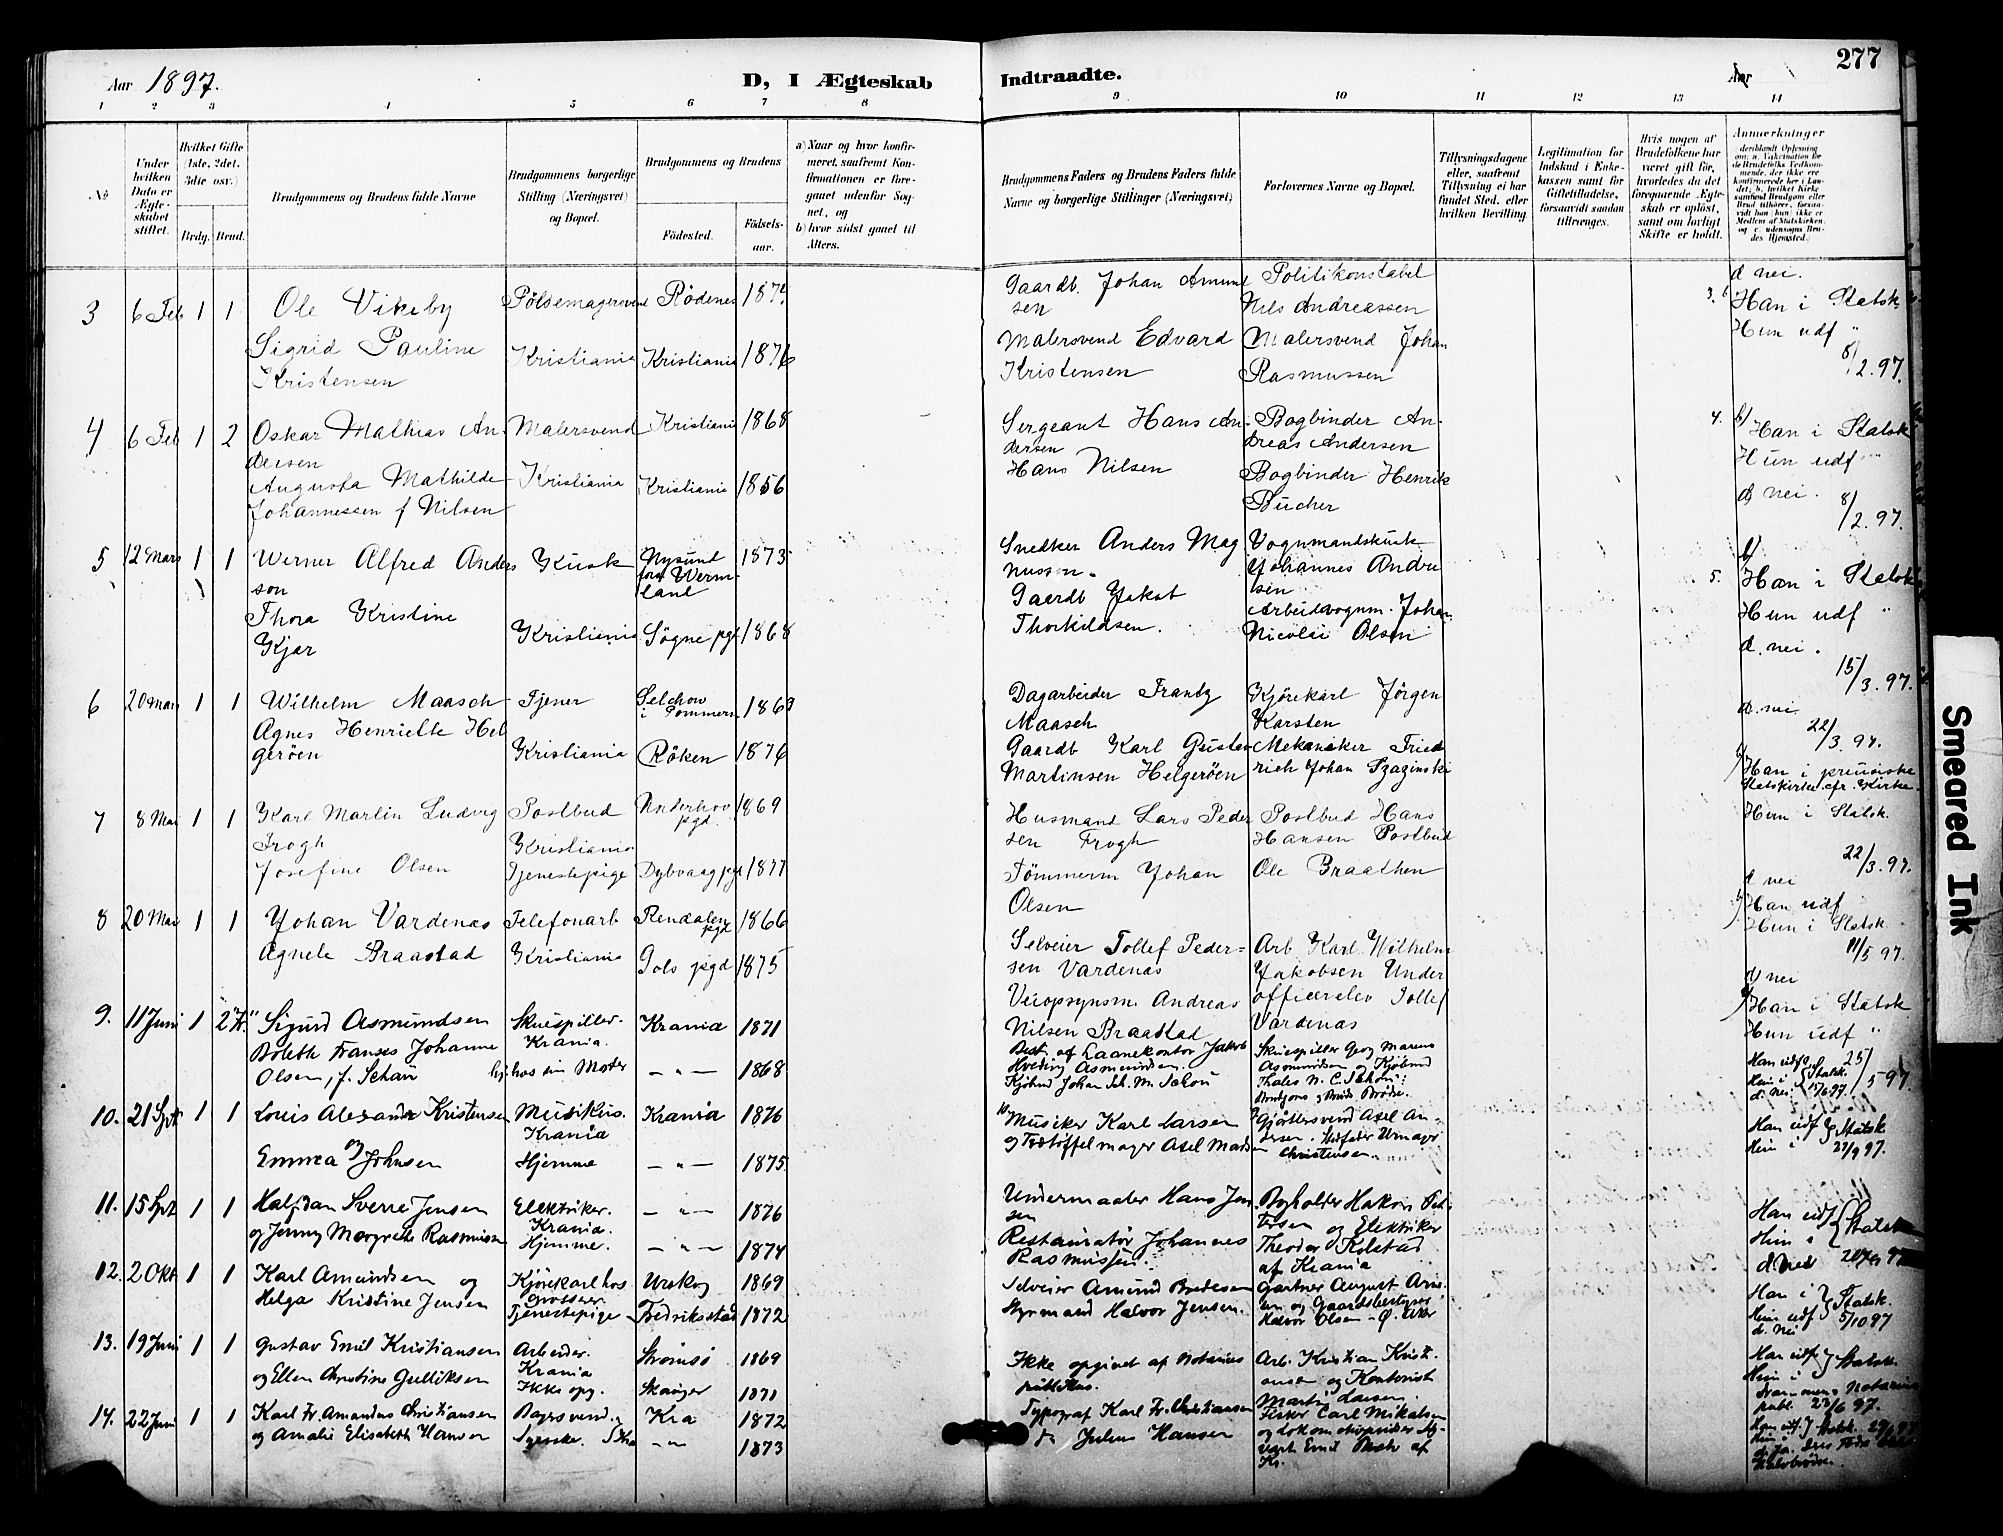 277
Aar 1897.
D, I Ægteskab Indtraadte.
Aar
1 2 3 4 5 6 7 8 9 10 11 12 13 14
No
Under hvilken Dato er Ægteskabet stiftet.
Hvilket Gifte (1ste, 2det, 3die osv.)
Brdg. Brud.
Brudgommens og Brudens fulde Navne
Brudgommens borgerlige Stilling (Næringsvei) og Bopæl.
Brudgommens og Brudens
Fødested.
Fødselsaar.
a) Naar og hvor konfirmeret, saafremt Konfirmationen er foregaaet udenfor Sognet, og
b) hvor sidst gaaet til Alters.
Brudgommens Faders og Brudens Faders fulde Navne og borgerlige Stillinger (Næringsvei)
Forlovernes Navne og Bopæl.
Tillysningsdagene eller, saafremt Tillysning ei har fundet Sted, efter hvilken Bevilling.
Legitimation for Indskud i Enkekassen samt for Giftetilladelse, forsaavidt saadan tiltrænges.
Hvis nogen af Brudefolkene har været gift før, hvorledes da det foregaaende Ægteskab er opløst, samt om lovligt Skifte er holdt.
Anmerkninger
3 6 Feb 1 1 Ole Vikeby Pölsemagersvend Rödenes 187
Sigrid Pauline Kristiania Kristiania 1876
Kristensen
Gaardb. Johan Amund
sen
Malersvend Edvard
Kristensen
Politikonstabel
Nils Andreassen
Malersvend Johan
Rasmussen
d nei.
3. Han i Statsk
Hun udf "
8/2.97.
4 6 Feb 1 2 Oskar Mathias An Malersvend Kristiania 1868
dersen
Augusta Mathilde Kristiania Kristiania 1856
Johannessen f Nilsen
Sergeant Hans An
dersen
Hans Nilsen
Bogbinder An
dreas Andersen
Bogbinder Henrik
Bücher
4. b/ Han i Statsk
Hun udf
d nei.
8/2.97.
5 12 Mars 1 1 Werner Alfred Anders Kusk Nysund 1873
son fra Werm
land
Thora Kristine
Kjær Kristiania Søgne pgd 1868
Snedker Anders Mag
nusson.
Gaardb Jakob
Thorkildsen.
Vognmandskusk
Johannes Andre
sen
Arbeidsvognm. Johan
Nicolai Olsen
b/
5. Han i Statsk
Hun udf "
d. nei.
15/3.97.
6 20 Mars 1 1 Wilhelm Maasch Tjener Selchow 1863
i Pommern
Agnes Henriette Hel
gerøen Kristiania Röken 1876
Dagarbeider Frantz
Maasch
Gaardb Karl Gustav
Martinsen Helgerøen
Kjørekarl Jörgen
Karsten
Mekaniker Fried
rich Johan
d. nei.
22/3.97.
Han i preusiske
Statskirke
Hun i Statsk.
22/3.97.
7 8 Mai 1 1 Karl Martin Ludvig Postbud 1869
Frogh Kristiania
Josefine Olsen Tjenestepige Dybvaag pgd 1877
Husmand Lars Peder
sen Frogh
Tömmerm Johan
Olsen
Postbud Hans
Hansen Postbud
Ole Braathen
d nei
Han udf
Hun i Statsk
11/5 97.
8 20 Mai 1 1 Johan Vardenæs Telefonarb Rendalen 1866
pgd
Agnete Braastad Kristiania Gols pgd 1875
Selveier Tollef Peder-
sen Vardenæs
Veiopsynsm. Andreas
Nilsen Braastad
Arb Karl Wilhelm
Jakobsen Under
officerelev Tollef
Vardenæs
d nei
Han i Statsk
Hun udf "
25/5 97.
9. 11 Juni 1 2 "fr." Sigurd Asmundsen Skuespiller. Krania 1871
Bolette Franses Johanne Krania.
Olsen, f. Schau hj. hos sin Moder — " — 1868
Best. af Laanekontor Jakob
Asmundsen.
Skuespiller Georg Marens
Asmundsen og Kjøbmd
Han udf Statsk.
Hun i
d. nei 15/6 97.
10. 21 Spt 1 1 Louis Alexander Kristensen Musikus. Krania 1876
og Krania
Emma Johnsen Hjemme — " — 1875
Musiker Karl Larsen
og Tøftøffelmager Axel
Gjørtlersvend Axel An-
dersen. Stedfader Urmager
Christensen.
Han udf Statsk
Hun i 23/9 97.
11. 15 Spt 1 1 Halfdan Sverre Jensen Elektriker. — " — 1876
Krania.
og Jenny Margrethe Rasmussen Hjemme. — " — 1874
Undermaaler Hans Jen
sen
Restauratør Johannes
Rasmussen.
Bogholder Hakon Pet-
tersen og Elektriker
Theodor Kolstad
af Krania
Han udf Statsk
Hun i
d Nei
12. 2 Okt. 1 1 Karl Amundsen og Kjørekarl hos Urskog 1869
Grosserer
Helga Kristine Jensen Tjenestepige Fredriksstad 1872
Selveier Amund Bredesen
Styrmand Halvor Jensen.
Gartner August Arne
sen og Gaardsbestyrer
Halvor Olsen - Ø. Aker
Han i Statsk.
Hun udf 5/10 97
d. Nei
13. 19 Juni 1 1 Gustav Emil Kristiansen Arbeider. Strömsö 1869
Krania
og Ellen Christine Gulliksen Ikke opg. Skauger 1871
Ikke opgivet af Notarius
publikus.
Arb. Kristian Kristi-
ansen og Kontorist
Martin Larsen.
Han udf Statsk.
Hun i
Notarius
publ. 23/6 97.
14. 22 Juni 1 1 Karl Fr. Amandus Christiansen Bagersvend. Kra 1872
og Amalie Elisabeth Hansen Syerske. — " — 1873
Typograf Karl Fr. Christiansen
Julius Hansen
Fisker Carl Mikalsen
og
vart Emil af
Kr.
Han udf. Statsk.
Hun i
d. ja.
Smeared Ink